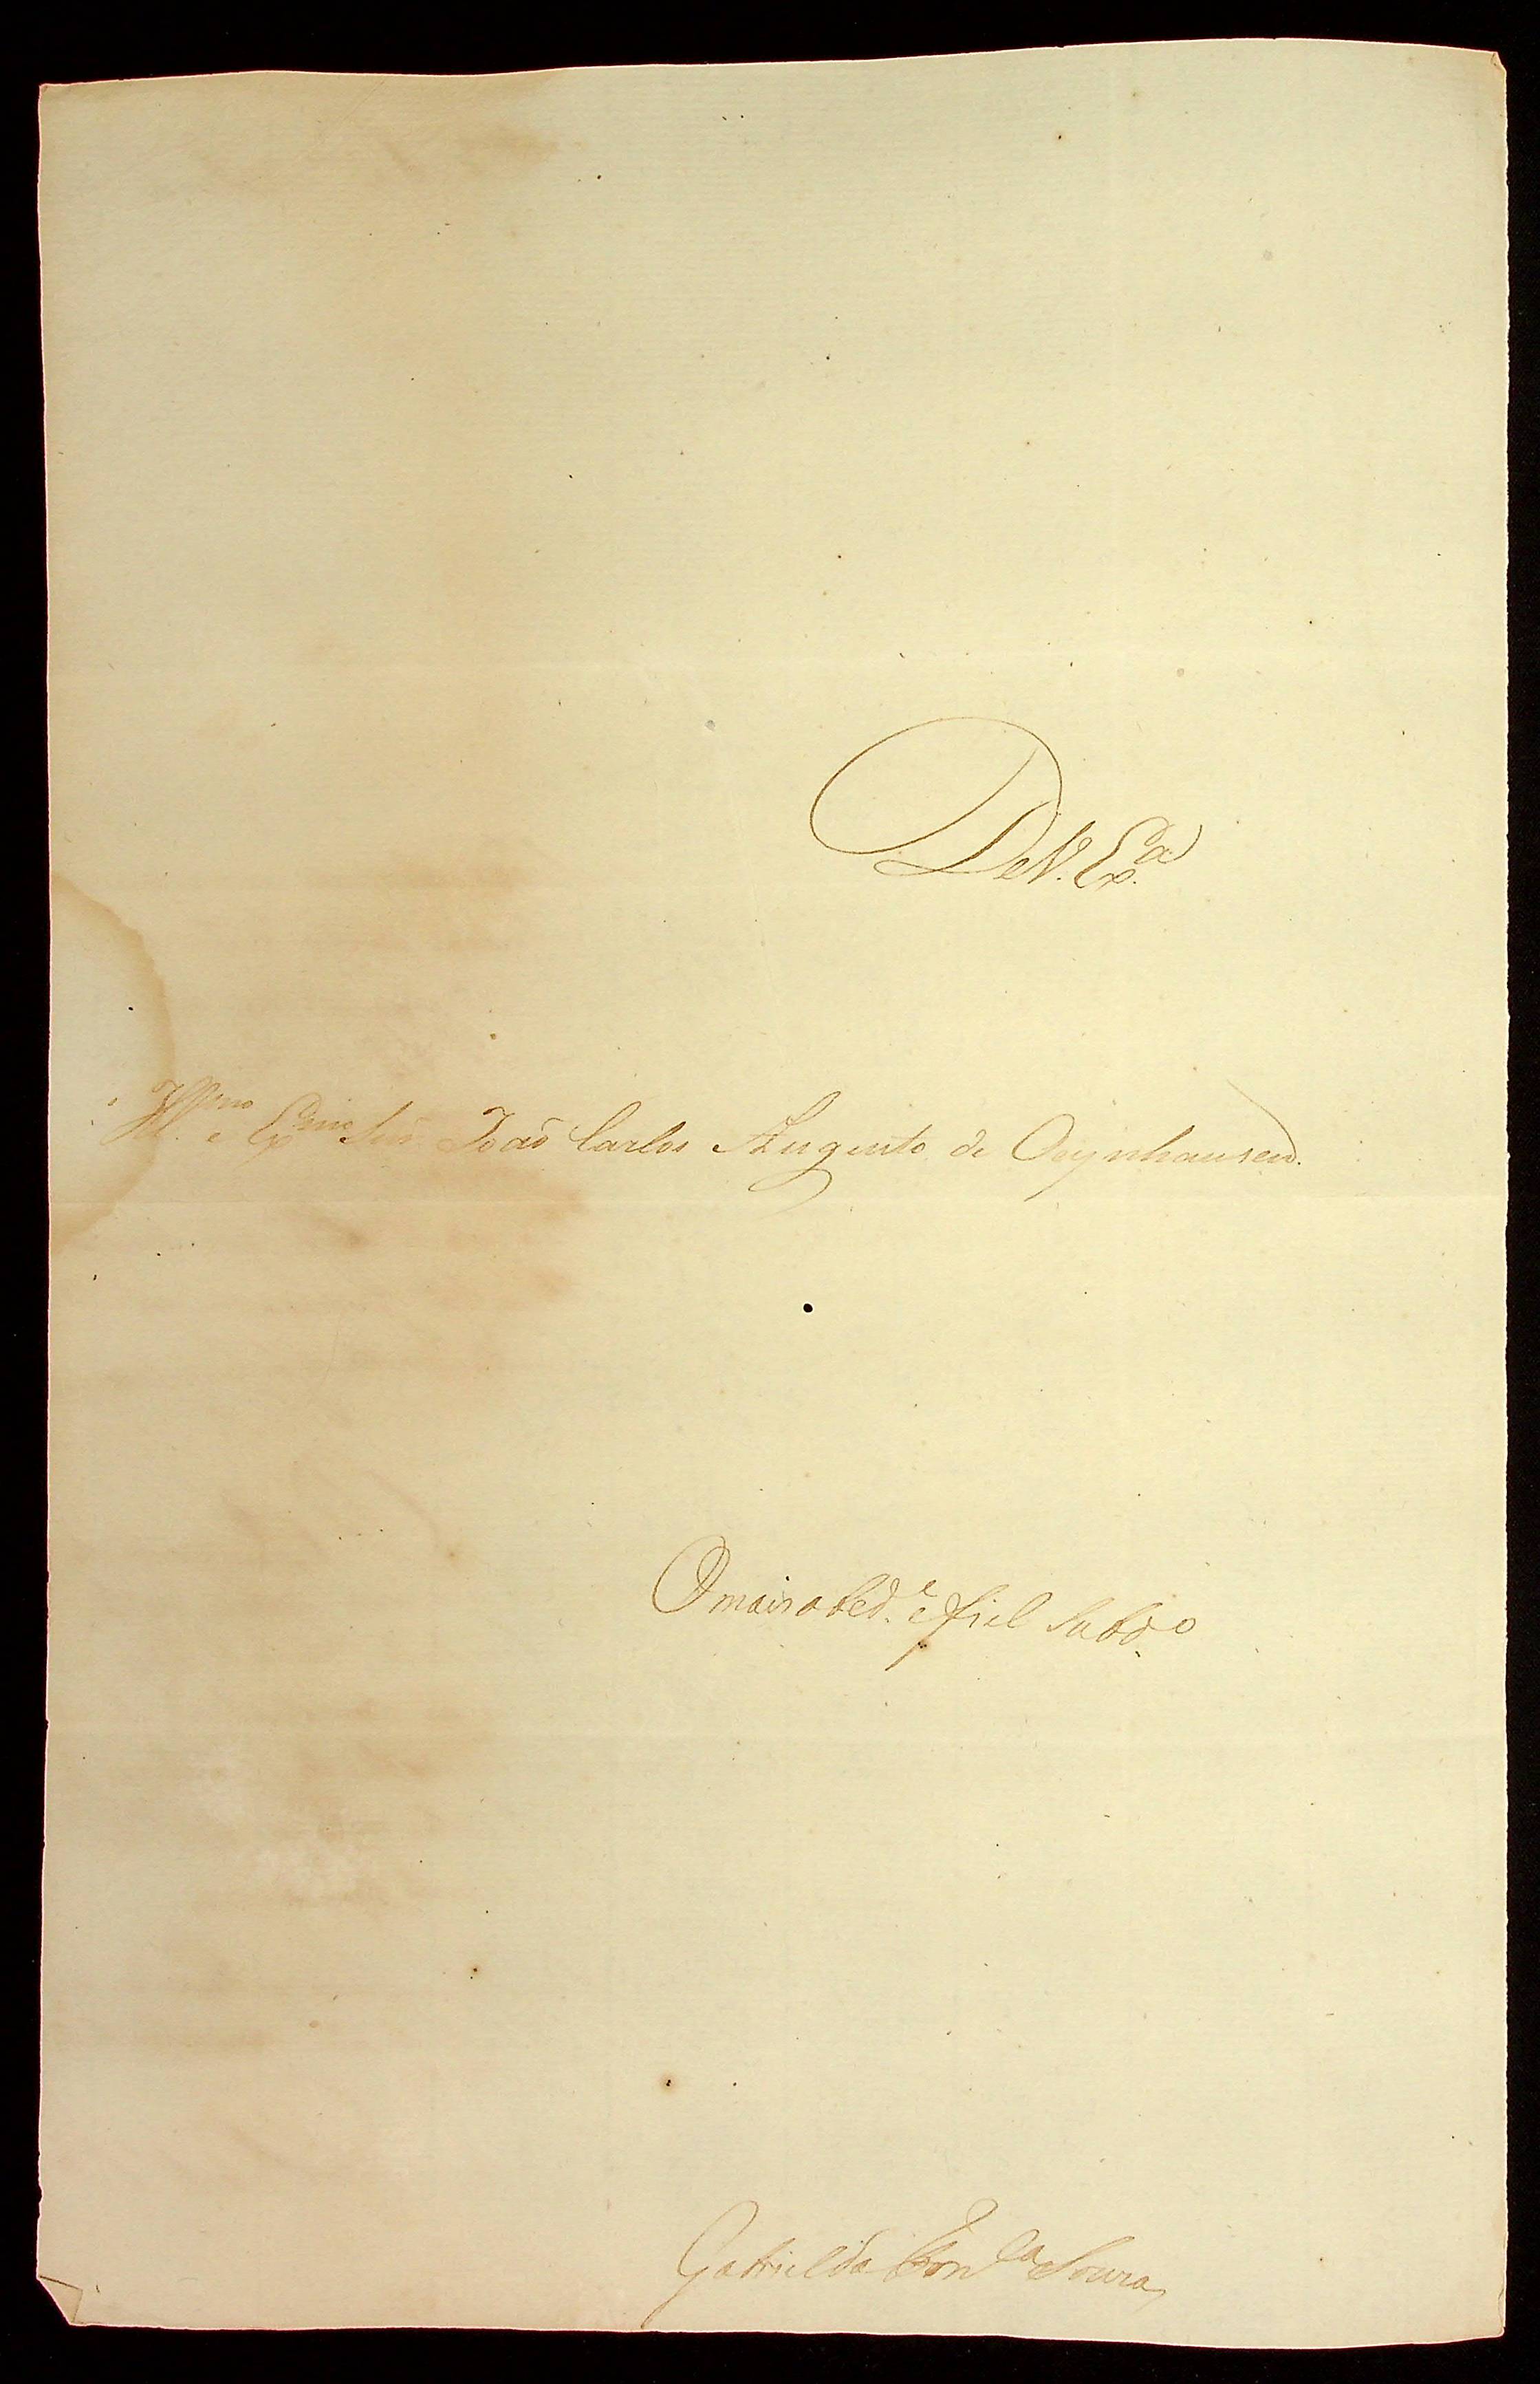 De V. Exª
Illmo e Exmo Snr João Carlos Augusto de Oeynhausen.
O mais obedᵉ e fiel Subdº
Gabriel da Fonˢª Souza